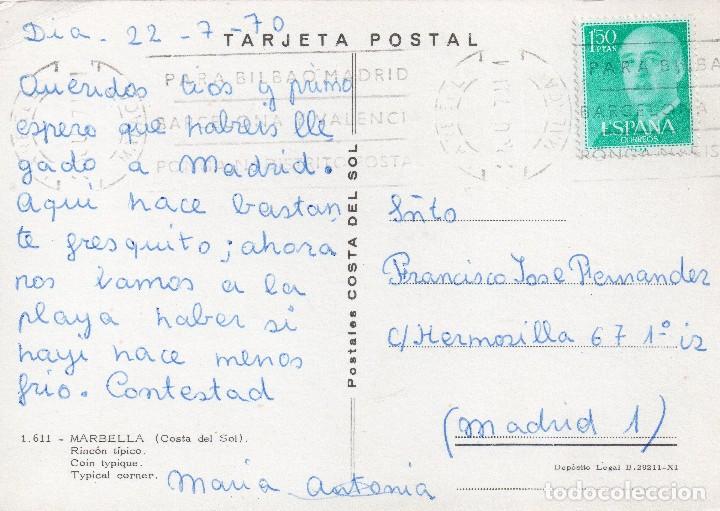 Dia - 22 - 7 - 70
TARJETA POSTAL
Queridos tios y primo
espero que habreis lle
gado a Madrid.
Aqui hace bastan
te fresquito; ahora
nos vamos a la
playa haber si
hayi hace menos
frio. Contestad
Maria Antonia
1.611 - MARBELLA (Costa del Sol).
Rincón típico.
Coin typique.
Typical corner.
Postales COSTA DEL SOL
PARA BILBAO MADRID
BARCELONA VALENCI
PONGAN DISTRITO POSTA
1'50
PTAS
ESPAÑA
CORREOS
PARA BILBA
BARCELONA
PONGAN DIS
Sñto
Francisco Jose Fernandez
c/ Hermosilla 67 1º iz
(Madrid 1)
Depósito Legal B.29211-XI
todocoleccion